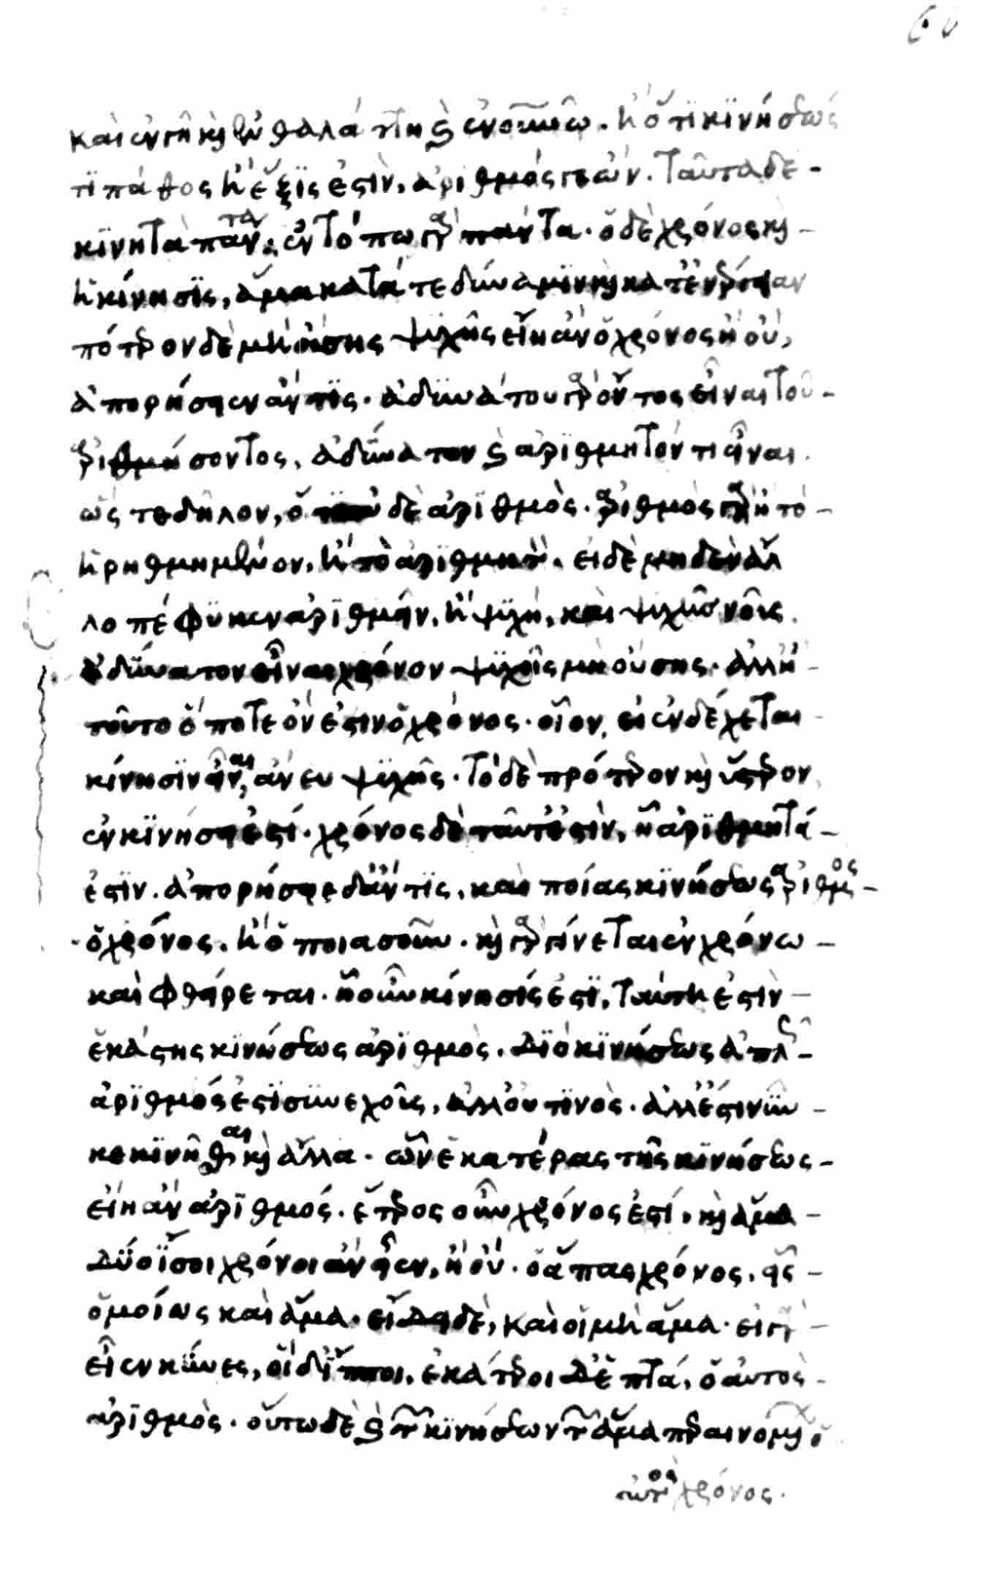 καὶ ἐν γῇ καὶ ἐν θαλάττῃ καὶ ἐν οὐρανῷ. ἢ ὅτι κινήσεως
τι πάθος ἢ ἕξις ἐστὶν, ἀριθμός γε ὤν. ταῦτα δὲ
κινητὰ πάντα· ἐν τόπω γὰρ πάντα. ὁ δὲ χρόνος καὶ
ἡ κίνησις, ἅμα κατά τε δύναμιν καὶ κατ' ἐνέργειαν
πότερον δὲ μὴ οὔσης ψυχῆς εἴη ἂν ὁ χρόνος ἢ οὐ,
ἀπορήσειεν ἄν τις. ἀδυνάτου γὰρ ὄντος εἶναι τοῦ
ἀριθμήσοντος, ἀδύνατον καὶ ἀριθμητόν τι εἶναι.
ὥστε δῆλον, ὅτι οὐδὲ ἀριθμὸς. ἀριθμὸς γὰρ ἢ τὸ
ἠριθμημένον, ἢ τὸ ἀριθμητόν. εἰ δὲ μηδὲν ἄλ
λο πέφυκεν ἀριθμεῖν, ἢ ψυχὴ, καὶ ψυχῆς νοῦς,
ἀδύνατον εἶναι χρόνον ψυχῆς μὴ οὔσης. ἀλλ' ἢ
τοῦτο ὅ ποτε ὄν ἐστιν ὁ χρόνος. οἷον, εἰ ἐνδέχεται
κίνησιν εἶναι, ἄνευ ψυχῆς. τὸ δὲ πρότερον καὶ ὕστερον
ἐν κινήσει ἐστί. χρόνος δὲ ταῦτ' ἐστὶν, ᾗ ἀριθμητά
ἐστιν. ἀπορήσειε δ' ἄν τις, καὶ ποίας κινήσεως ἀριθμὸς
ὁ χρόνος. ἢ ὁποιασοῦν. καὶ γὰρ γίνεται ἐν χρόνω
καὶ φθείρεται. ᾗ οὖν κίνησίς ἐστι, ταύτη ἐστὶν
ἑκάστης κινήσεως ἀριθμὸς. διὸ κινήσεως ἁπλῶς
ἀριθμός ἐστι συνεχοῦς, ἀλλ' οὐ τινὸς. ἀλλ' ἔστι νῦν
κεκινῆσθαι καὶ ἄλλα. ὧν ἑκατέρας τῆς κινήσεως
εἴη ἂν ἀριθμός. ἕτερος οὖν χρόνος ἐστί, καὶ ἅμα
δύο ἴσοι χρόνοι ἂν εἶεν, ἢ οὐ. ὁ ἅπας χρόνος, εἷς
ὁμοίως καὶ ἅμα. εἴδει δὲ, καὶ οἱ μὴ ἅμα. εἰ γὰρ
εἶεν κύνες, οἱ δ' ἵπποι, ἑκάτεροι δ' ἑπτά, ὁ αὐτὸς
ἀριθμὸς. οὕτω δὲ καὶ τῶν κινήσεων τῶν ἅμα περαινομένων ὁ
αὐτὸς χρόνος.